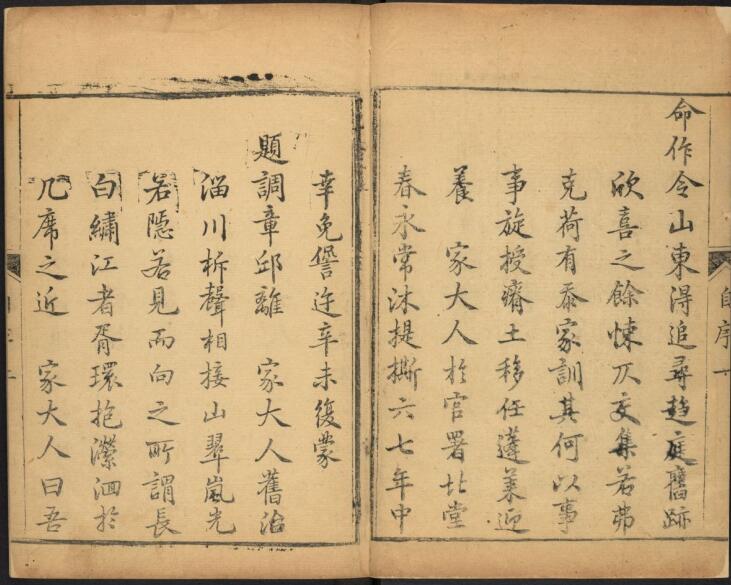 自序
命作令山東得追尋趍庭舊跡
欣喜之餘悚仄交集若弗
克荷有忝家訓其何以事
事旋授濟土移任蓬萊迎
養 家大人於官署北堂
春永常沐提撕六七年中
幸免諐迕辛未復蒙
題調章邱離 家大人舊治
淄川柝聲相接山翠嵐光
若隱若見而向之所謂長
白繡江者胥環抱瀠洄於
几席之近 家大人曰吾